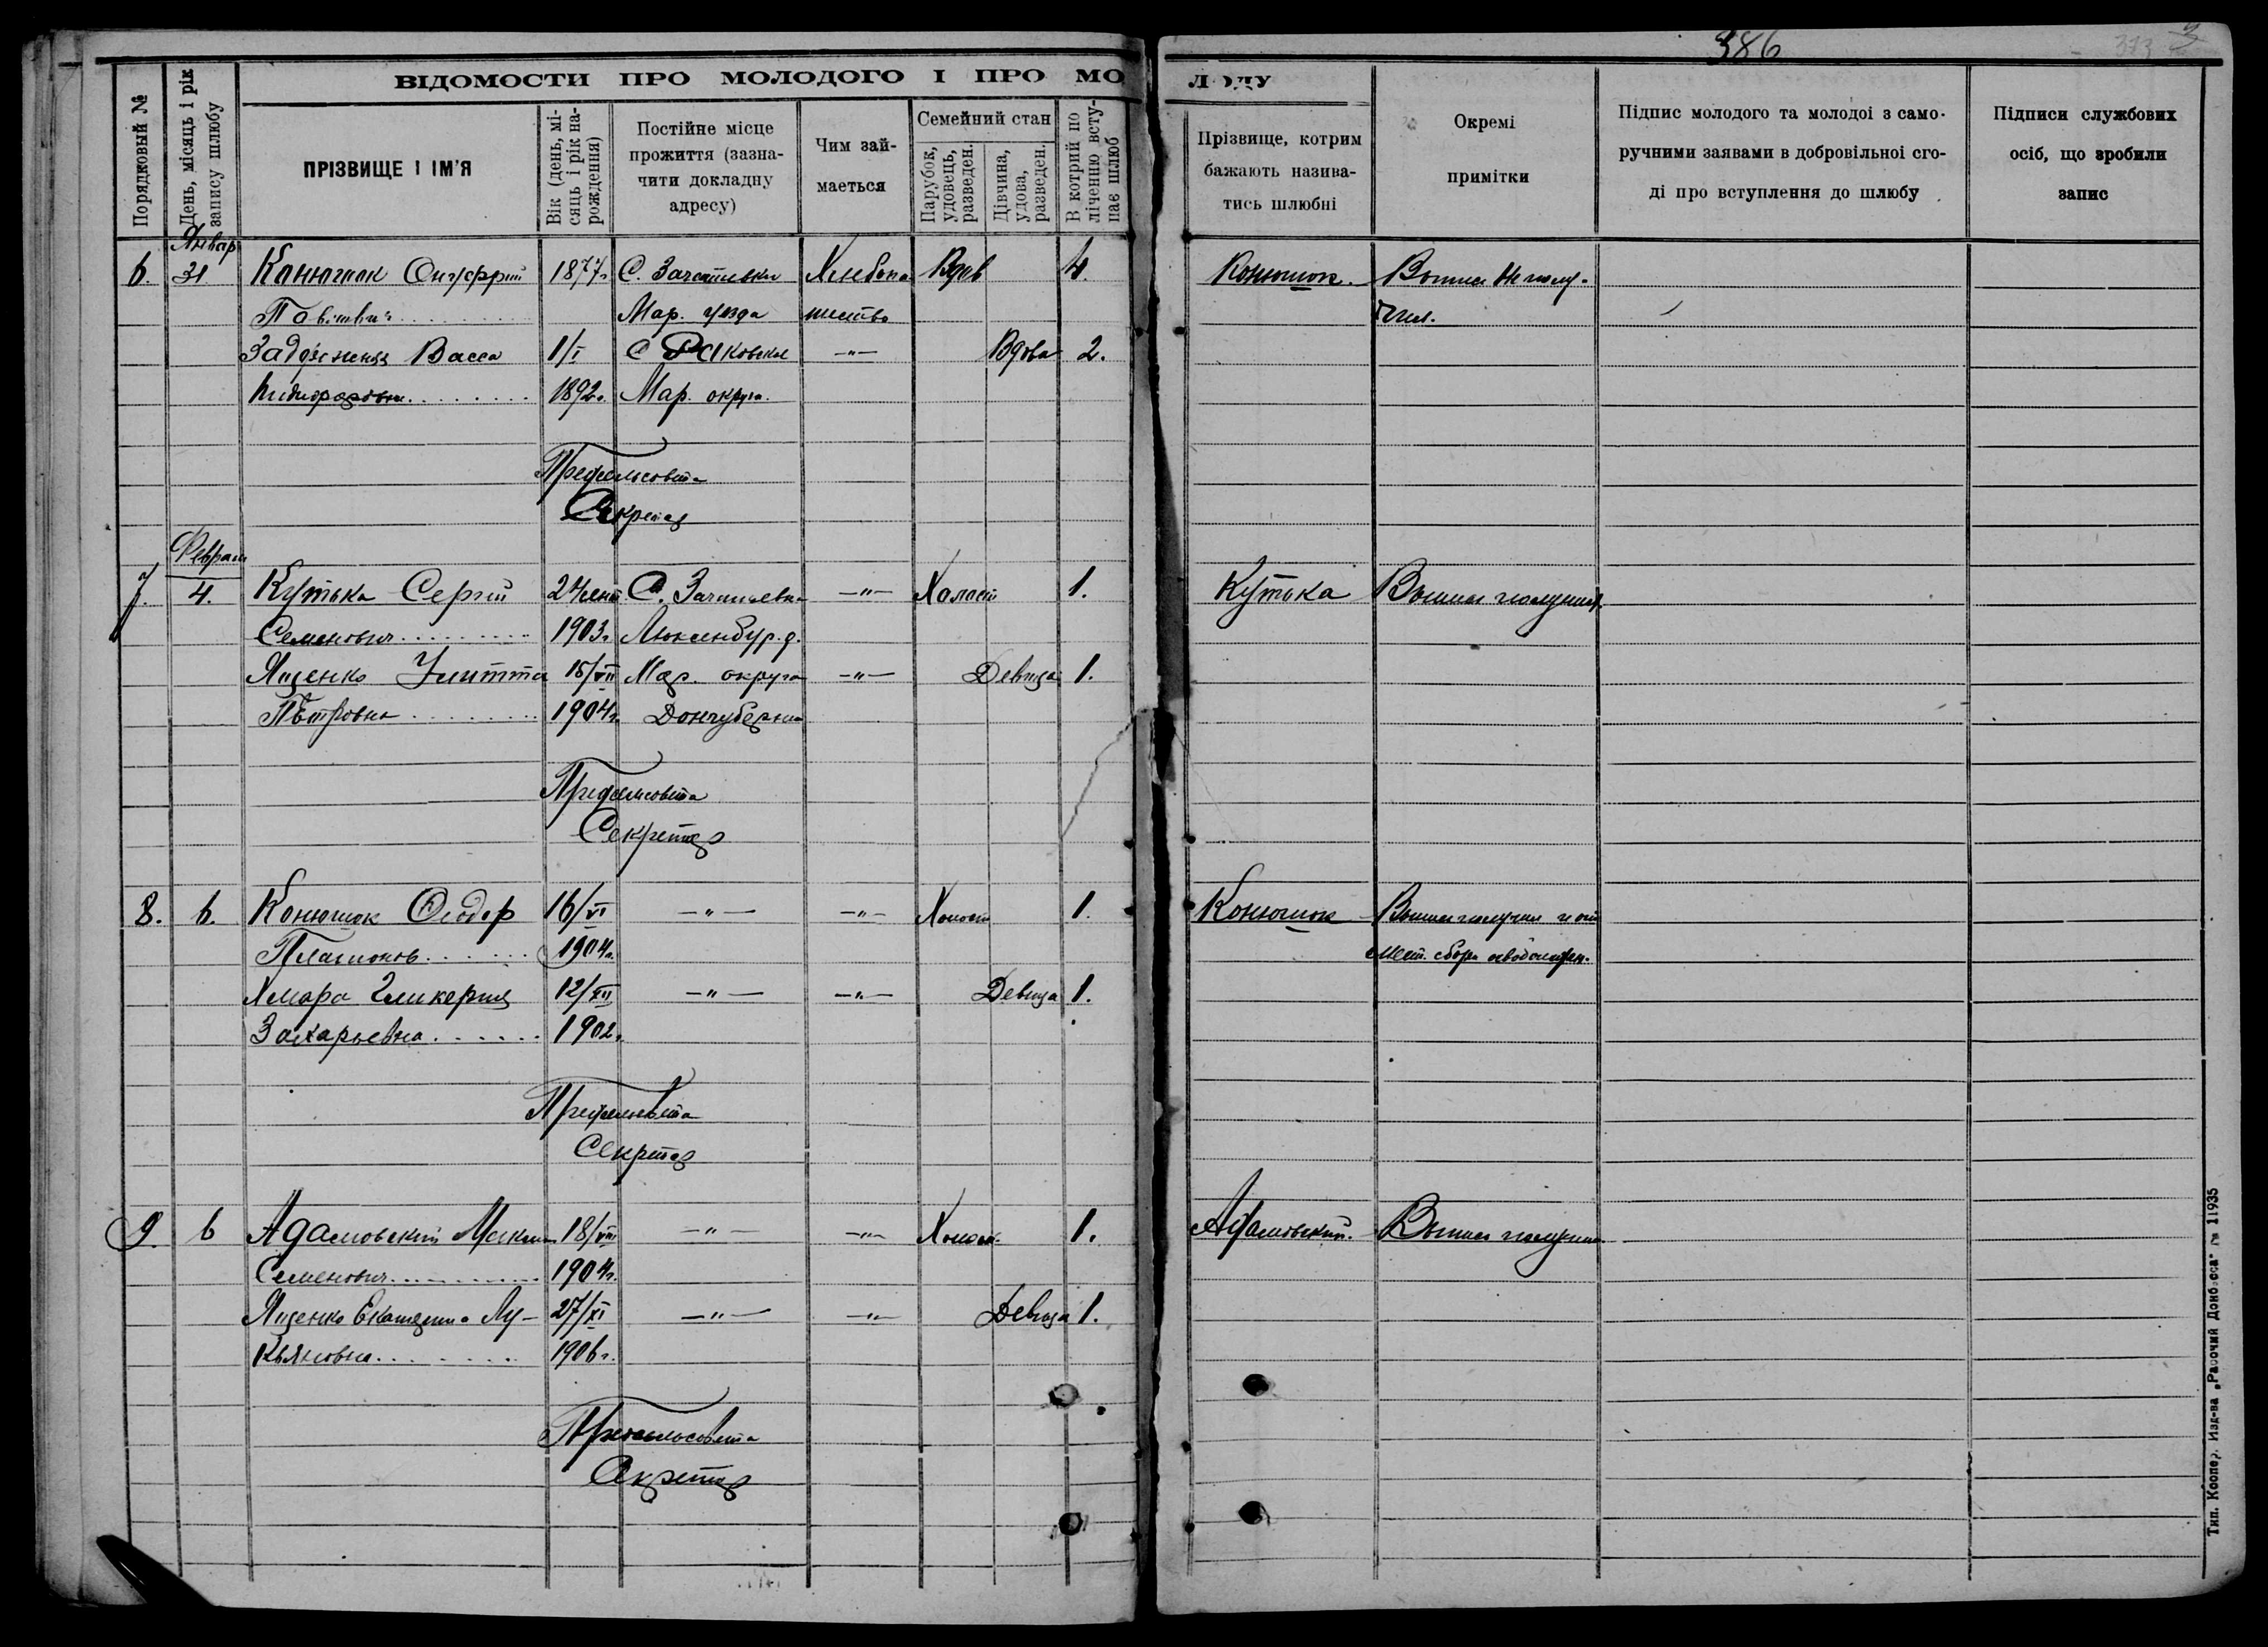 386
373
ВІДОМОСТИ ПРО МОЛОДОГО І ПРО МОЛОДУ
Порядковый №
День, місяць і рік запису шлюбу
ПРІЗВИЩЕ І ІМ'Я
Вік (день, місяць і рік народження)
Постійне місце прожиття (зазначити докладну адресу)
Чим займається
Семейний стан
Парубок, удовець, разведен.
Дівчина, удова, разведен.
В котрий по ліченню вступає шлюб
Прізвище, котрим бажають називатись шлюбні
Окремі примітки
Підпис молодого та молодоі з саморучними заявами в добровільноі сгоді про вступлення до шлюбу
Підписи службових осіб, що зробили запис
Январ
6. 31 Конюшок Онуфрий 1877г. С. Зачативки Хлебопа Вдов 4. Конюшок. Выпись не полу-
Мар. уезда шество чил.
Васса 1/I С Вдова 2.
1892г. Мар. округа.
Предсельсовета
Секретар
Феврал
7. 4. Кутька Сергий 24 сент. С. Зачатьевка —"— Холост 1. Кутька Выпись получил.
Семенович 1903г. Люксенбур. р.
Яценко Улитта 15/VII Мар. округа —"— Девица 1.
Петровна 1904г. Донгуберни
Предсельсовета
Секретар
8. 6. Конюшок Феодор 16/VI —"— —"— Холост 1. Конюшок Выпись получил и от
Платонов 1904г. мест. сбора освобожден.
Хмара Гликерия 12/XII —"— —"— Девица 1.
Захарьевна 1902г.
Предсельсовета
Секретар
9. 6 Адамовский 18/VIII —"— —"— Холост 1. Адамовский. Выпись получил
Семенович 1904г.
Яценко Екатерина Лу- 27/XI —"— —"— Девица 1.
кьяновна 1906г.
Предсельсовета
Секретар
Тип. Коопер. Изд-ва „Рабочий Донбасса" 11935